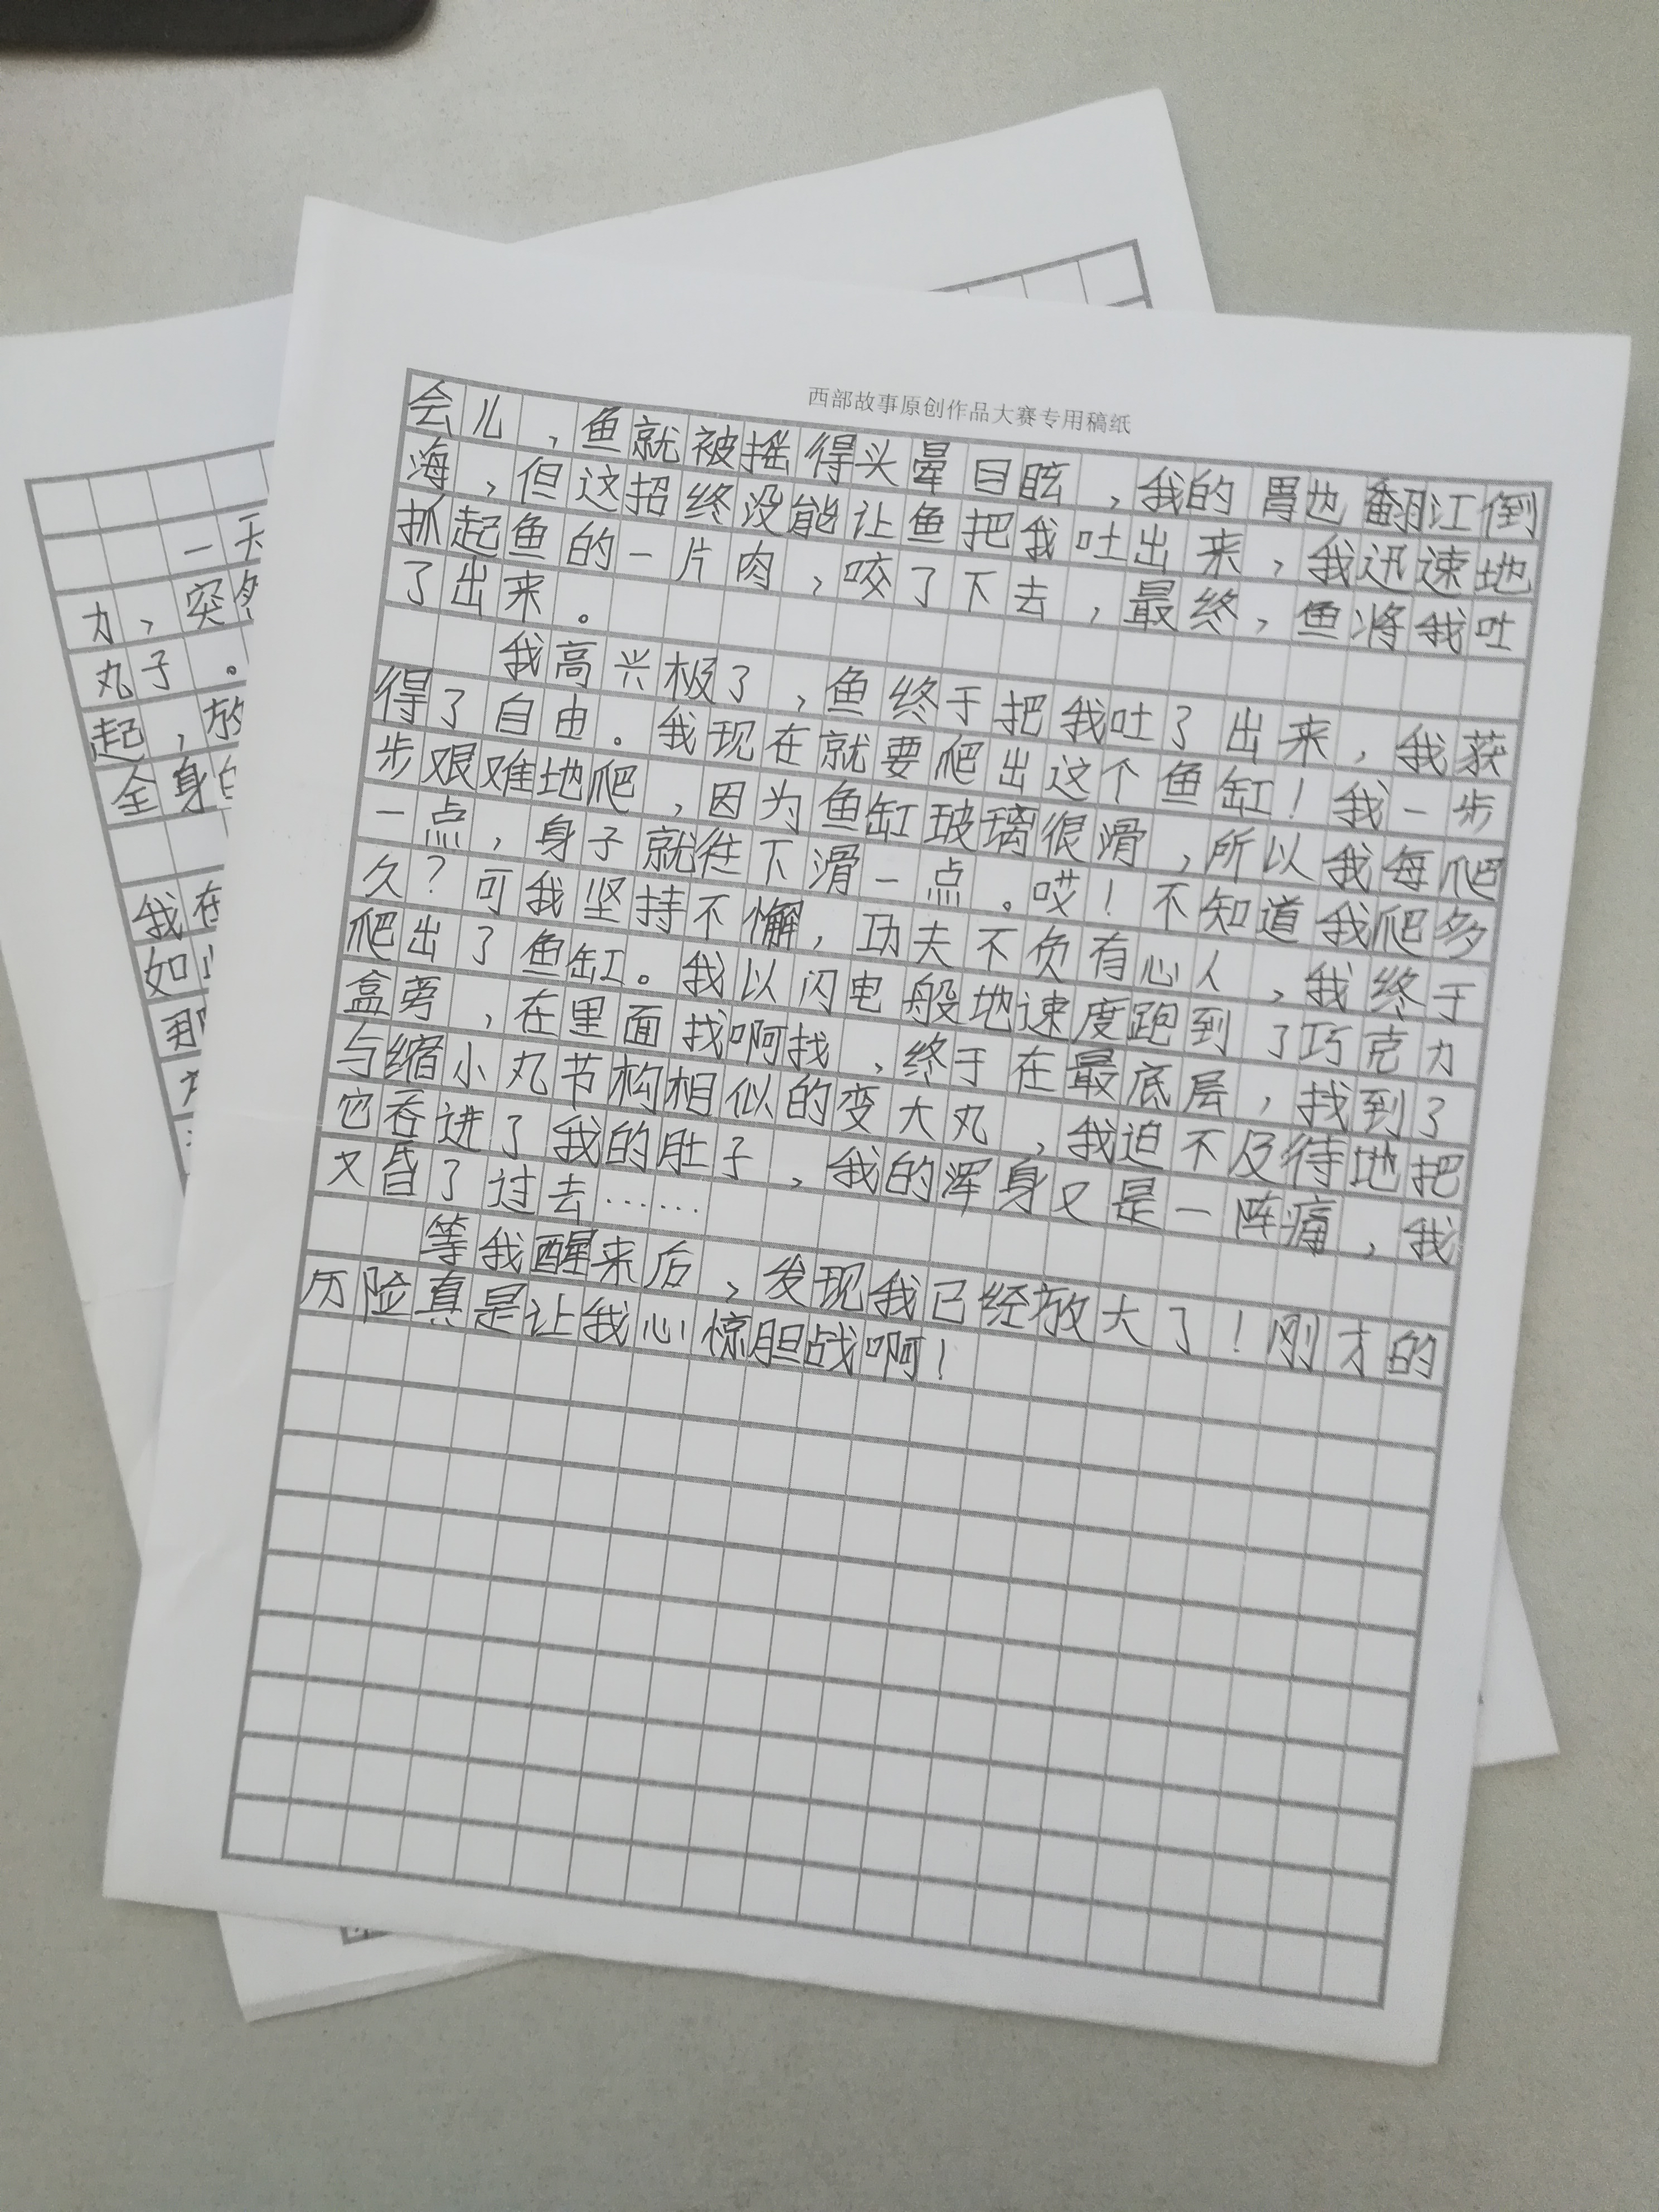 西部故事原创作品大赛专用稿纸
会儿,鱼就被摇得头晕目眩,我的胃也翻江倒
海,但这招终没能让鱼把我吐出来,我迅速地
抓起鱼的一片肉,咬了下去,最终,鱼将我吐
了出来。
我高兴极了,鱼终于把我吐了出来,我获
得了自由。我现在就要爬出这个鱼缸!我一步
步艰难地爬,因为鱼缸玻璃很滑,所以我每爬
一点,身子就往下滑一点。哎!不知道我爬多
久?可我坚持不懈,功夫不负有心人,我终于
爬出了鱼缸。我以闪电般地速度跑到了巧克力
盒旁,在里面找啊找,终于在最底层,找到了
与缩小丸节构相似的变大丸,我迫不及待地把
它吞进了我的肚子,我的浑身又是一阵痛,我
又昏了过去……
等我醒来后,发现我已经放大了!刚才的
历险真是让我心惊胆战啊!
一天
力,突然
丸子。
起,放
全身的
我在
如
那